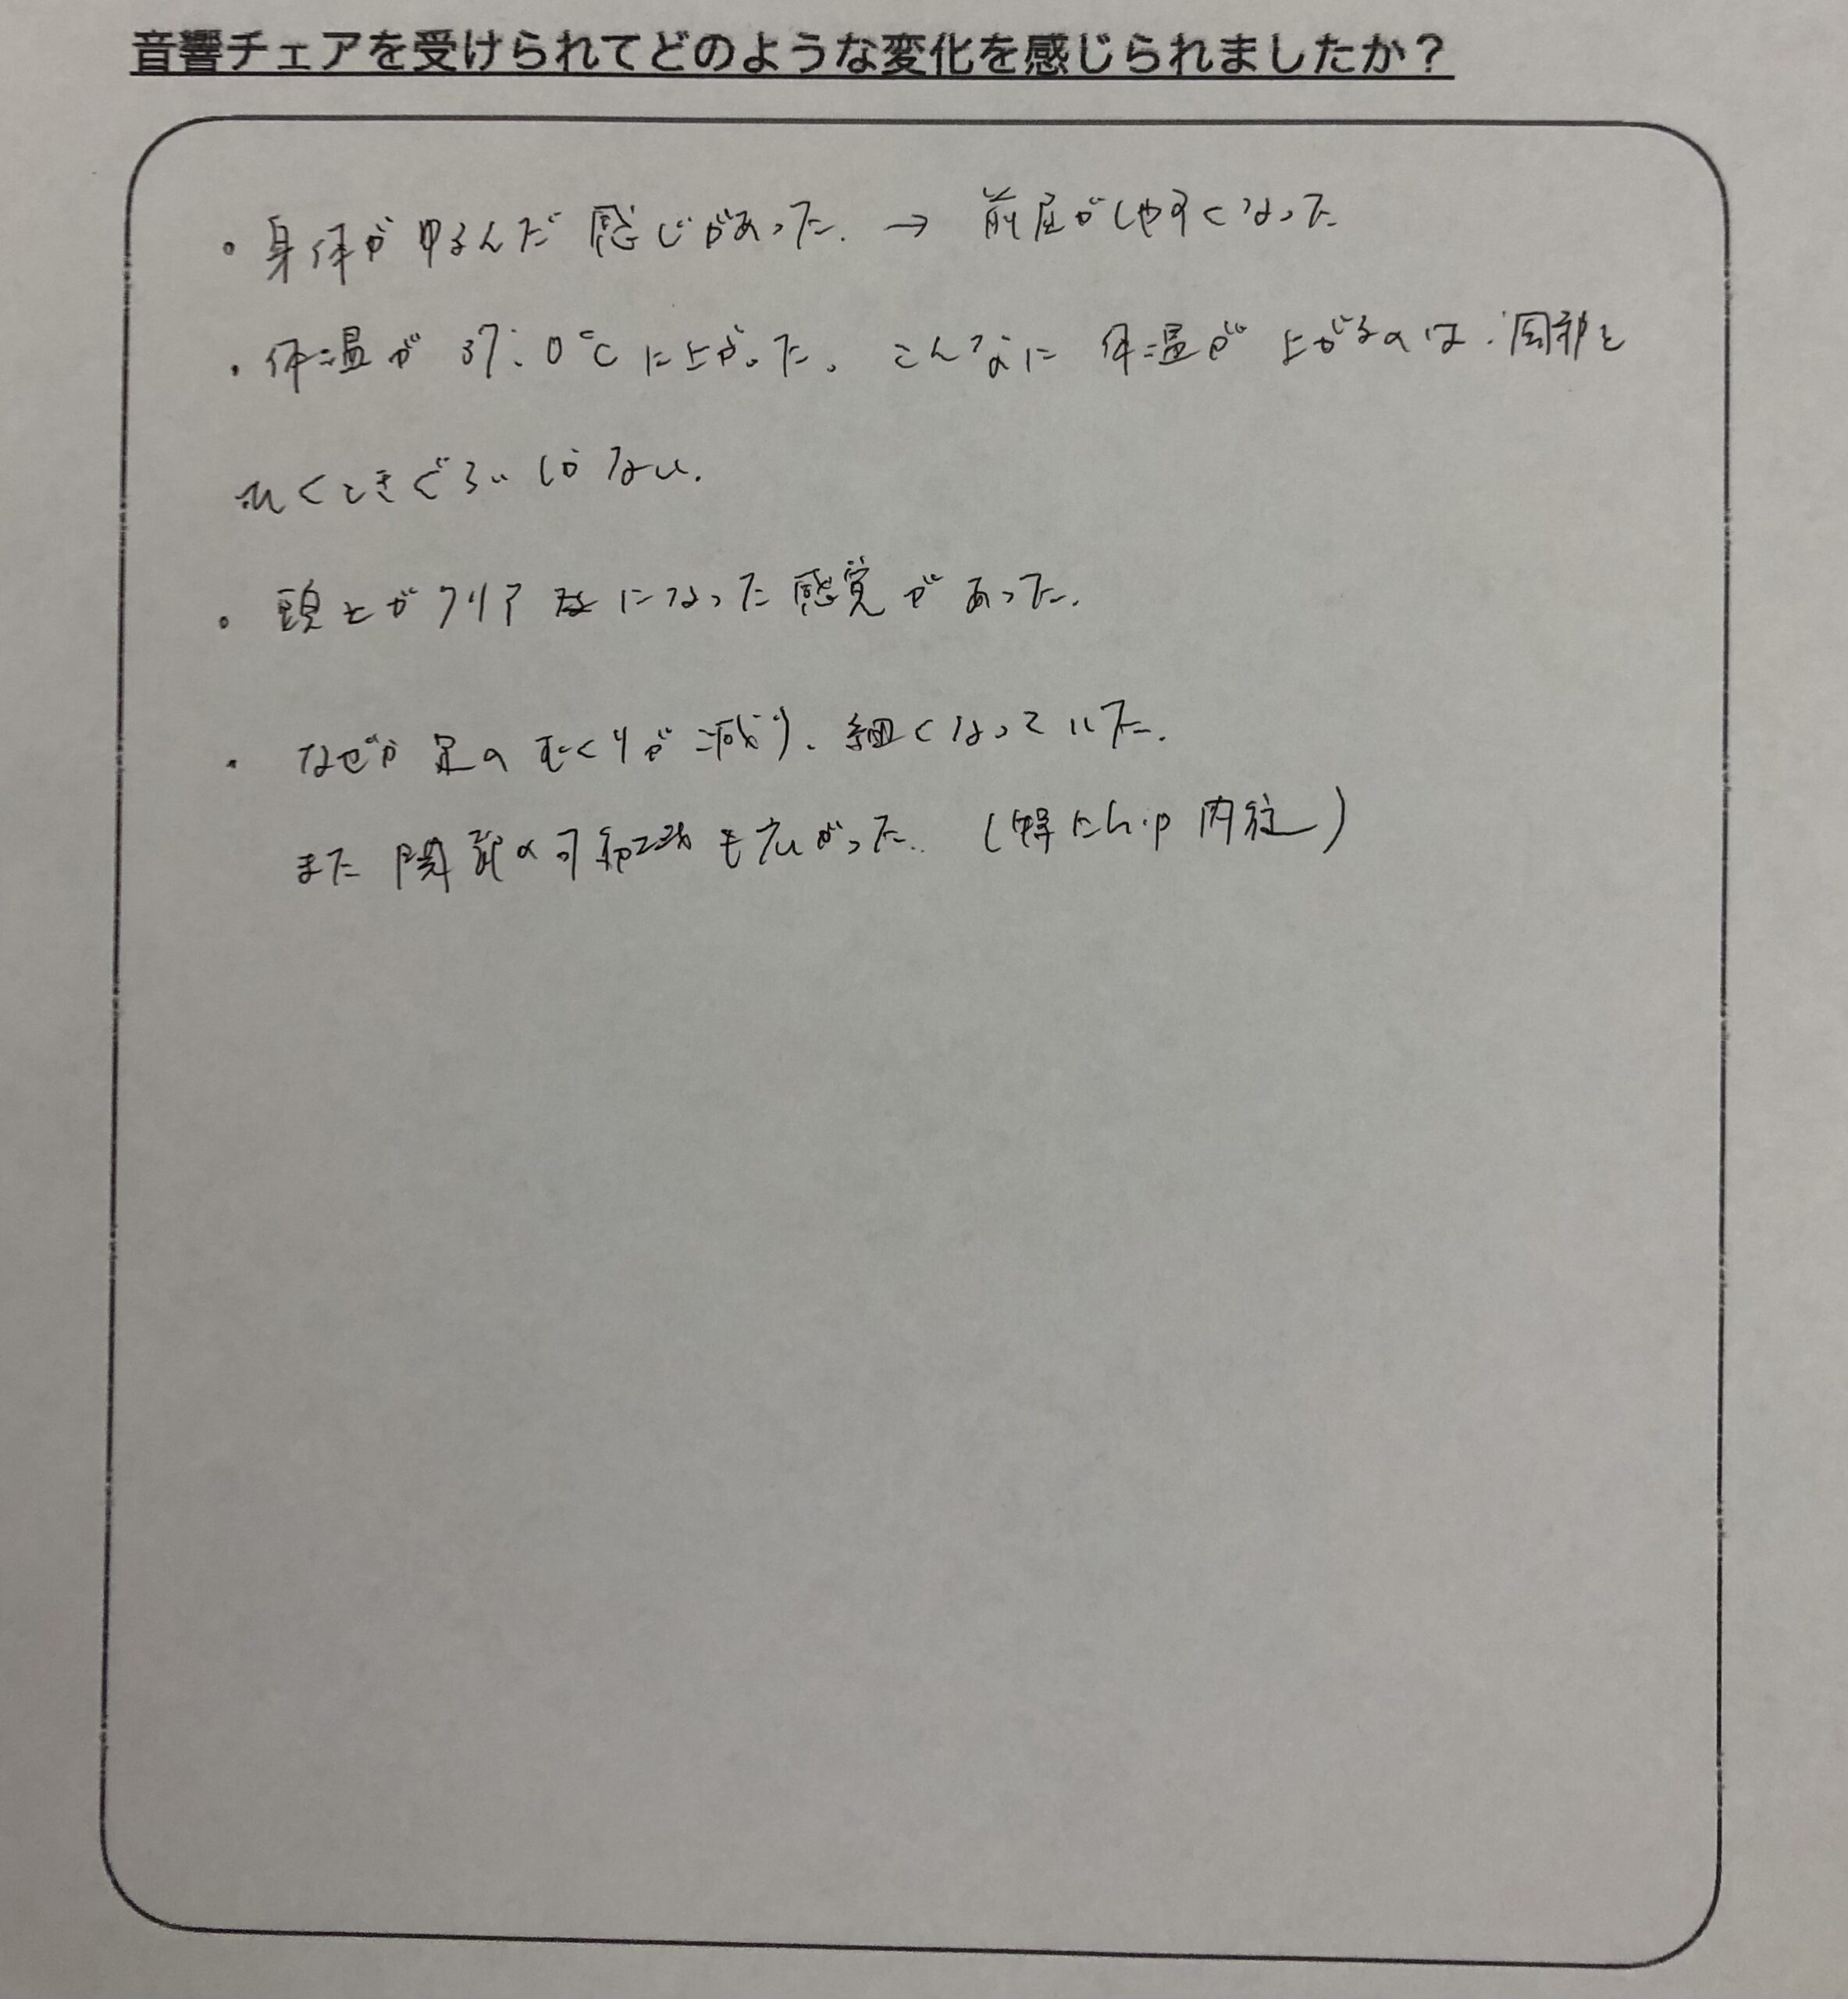 音響チェアを受けられてどのような変化を感じられましたか？
・身体がゆるんだ感じがあった. → 前屈がしやすくなった
・体温が 37.0℃に上がった. こんなに体温が上がるのは. 風邪を
ひくときぐらいしかない.
・頭とがクリアになった感覚があった.
・なぜか足のむくみが減り、細くなっていた.
また関節の可動域も広がった. (特にhip 内旋)